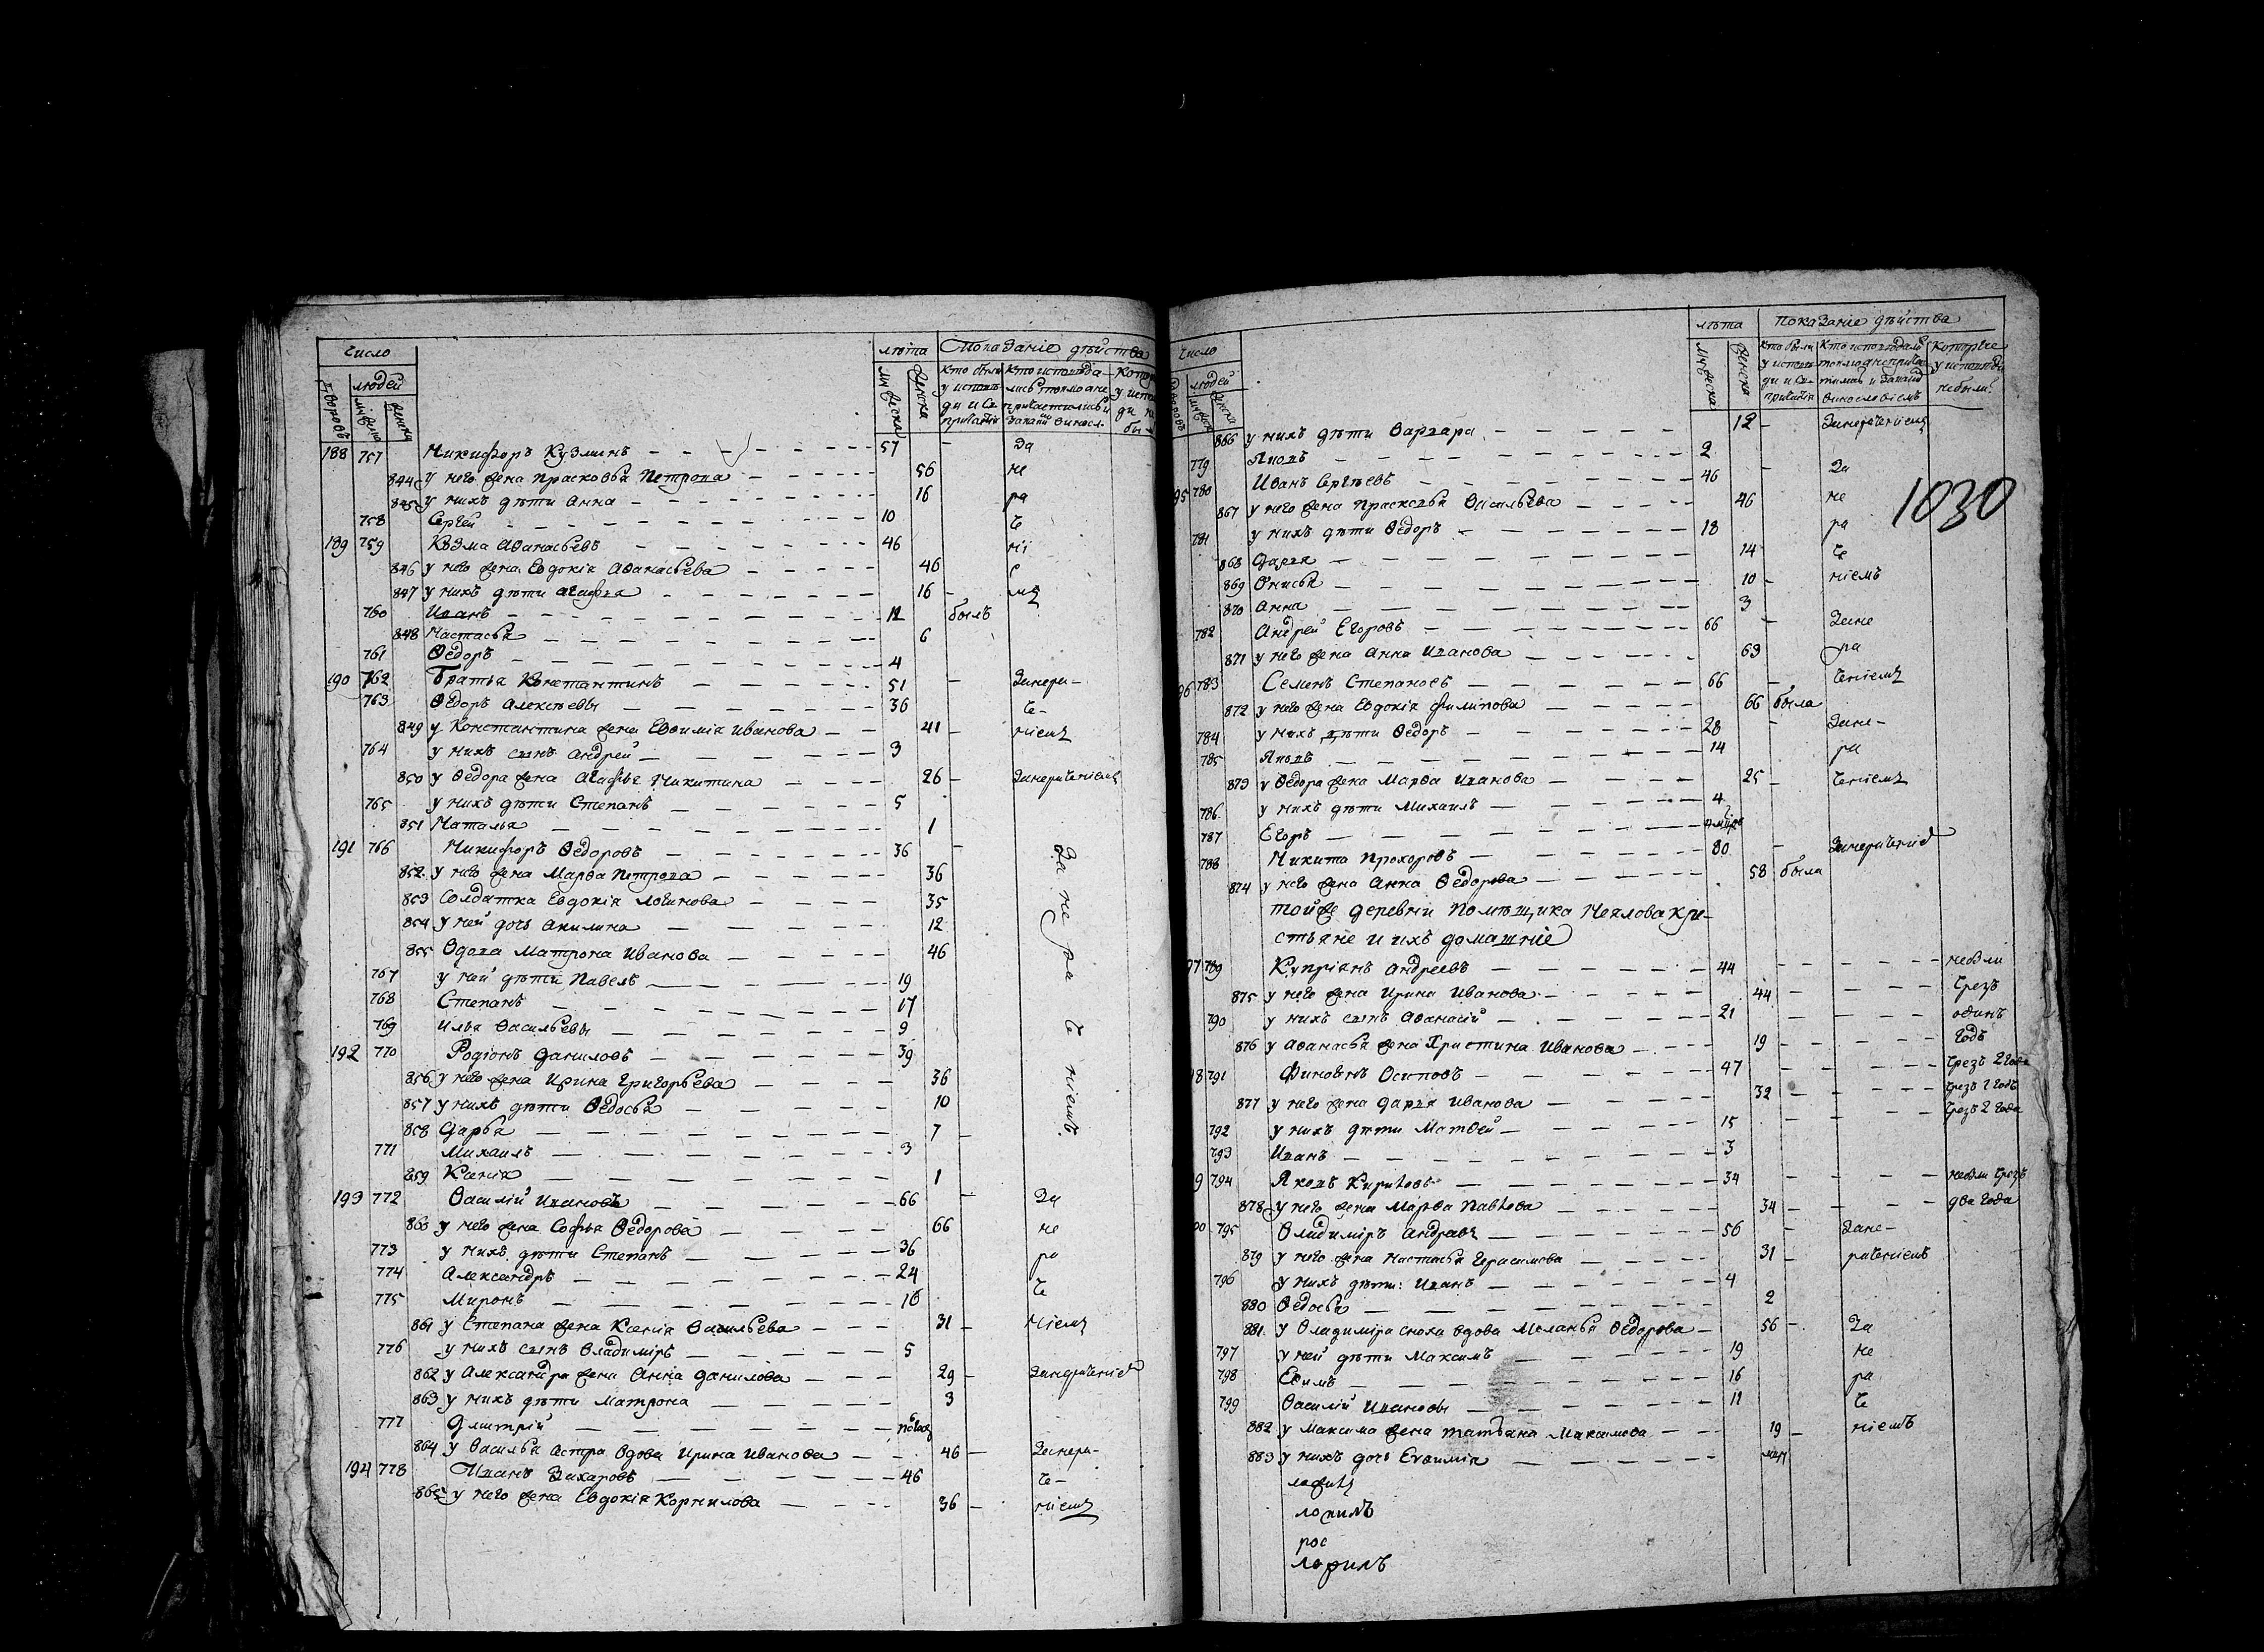 Число
людей
лѣта
Показаніе дѣйства
188 757 Никифоръ Кузминъ 57 За
844 у него жена Прасковья Петрова 56 не
845 у нихъ дѣти Анна 16 ра
758 Сергей 10 че
189 759 Козма Аѳанасьевъ 46 ні
846 у него жена Евдокія Аѳанасьева 46 е
847 у нихъ дѣти Агафья 16 мъ
760 Иванъ 12 былъ
848 Настасья 6
761 Ѳедоръ 4
190 762 Братья Константинъ 51 Занера-
763 Ѳедоръ Алексѣевы 36 че-
849 у Константина жена Евѳимія Иванова 41 ніемъ
764 у нихъ сынъ Андрей 3
850 у Ѳедора жена Агафья Никитина 26 Занераченіемъ
765 у нихъ дѣти Степанъ 5
851 Наталья 1
191 766 Никифоръ Ѳедоровъ 36 За не ра че ніемъ
852 у него жена Марѳа Петрова 36
853 Солдатка Евдокія Логинова 35
854 у ней дочь Акилина 12
855 Вдова Матрона Иванова 46
767 у ней дѣти Павелъ 19
768 Степанъ 17
769 Илья Васильевы 9
192 770 Родіонъ Даниловъ 39
856 у него жена Ирина Григорьева 36
857 у нихъ дѣти Ѳедосья 10
858 Дарья 7
771 Михаилъ 3
859 Ксенія 1
193 772 Василій Ивановъ 66 За
860 у него жена Софья Ѳедорова 66 не
773 у нихъ дѣти Степанъ 36 ра
774 Александръ 24 че
775 Миронъ 16
861 у Степана жена Ксенія Васильева 31 ніемъ
776 у нихъ сынъ Владиміръ 5
862 у Александра жена Анна Данилова 29 Занераченіе
863 у нихъ дѣти Матрона 3
777 Дмитрій
864 у Василья сестра вдова Ирина Иванова 46 Занера-
194 778 Иванъ Захаровъ 46 че-
865 у него жена Евдокія Корнилова 36 ніемъ
Число
людей
лѣта
Показаніе дѣйства
866 у нихъ дѣти Варвара 12 Занераченіемъ
779 Яковъ 2
95 780 Иванъ Сергѣевъ 46 За
1030
867 у него жена Прасковья Васильева 46 не
781 у нихъ дѣти Ѳедоръ 18 ра
868 Дарья 14 че
869 Онисья 10 ніемъ
870 Анна 3
782 Андрей Егоровъ 66 Зане
871 у него жена Анна Иванова 63 ра
96 783 Семенъ Степановъ 66 ченіемъ
872 у него жена Евдокія Филипова 66 была
784 у нихъ дѣти Ѳедоръ 28 Зане-
785 Яковъ 14 ра
873 у Ѳедора жена Марѳа Иванова 25 ченіемъ
786 у нихъ дѣти Михаилъ 4
787 Егоръ
788 Никита Прохоровъ 80 Занераченіе
874 у него жена Анна Ѳедорова 58 была
тойже деревни помѣщика Неялова кре-
стьяне и ихъ домашніе
97 789 Купріянъ Андреевъ 44 небыли
875 у него жена Ирина Иванова 44 чрезъ
790 у нихъ сынъ Аѳанасій 21 одинъ
876 у Аѳанасья жена Христина Иванова 19 годъ
98 791 Финогенъ Осиповъ 47 чрезъ 2 года
877 у него жена Дарья Иванова 32 чрезъ 1 годъ
792 у нихъ дѣти Матѳей 15 чрезъ 2 года
793 Иванъ 3
9 794 Яковъ Кириловъ 34 небыли чрезъ
878 у него жена Марѳа Павлова 34 два года
00 795 Владиміръ Андреевъ 56 Зане-
879 у него жена Настасья Герасимова 31 раченіемъ
796 у нихъ дѣти: Иванъ 4
880 Ѳедосья 2
881 у Владиміра сноха вдова Меланья Ѳедорова 56 За
797 у ней дѣти Максимъ 19 не
798 Ефимъ 16 ра
799 Василій Ивановы 11 че
882 у Максима жена Татьяна Максимова 19 ніемъ
883 у нихъ дочь Евѳимія
рос